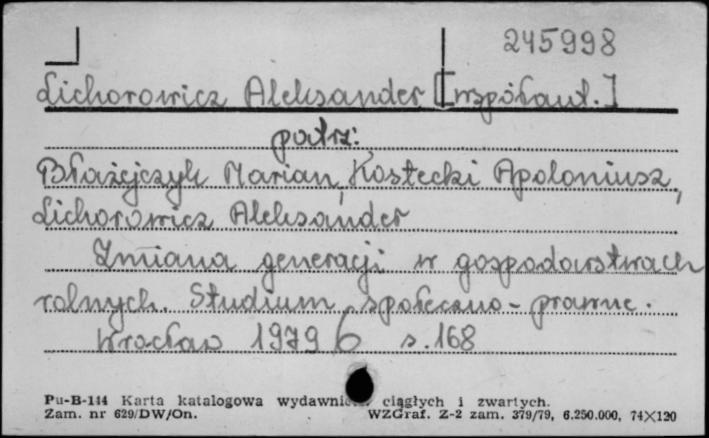 245998
Lichorowicz Aleksander [współaut.]
patrz:
Błażejczyk Marian, Kostecki Apoloniusz,
Lichorowicz Aleksander
Zmiana generacji w gospodarstwach
rolnych. Studium społeczno-prawne.
Wrocław 1979 s. 168
Pu-B-144 Karta katalogowa wydawnic ciągłych i zwartych.
Zam. nr 629/DW/On. WZGraf. Z-2 zam. 379/79, 6.250.000, 74×120